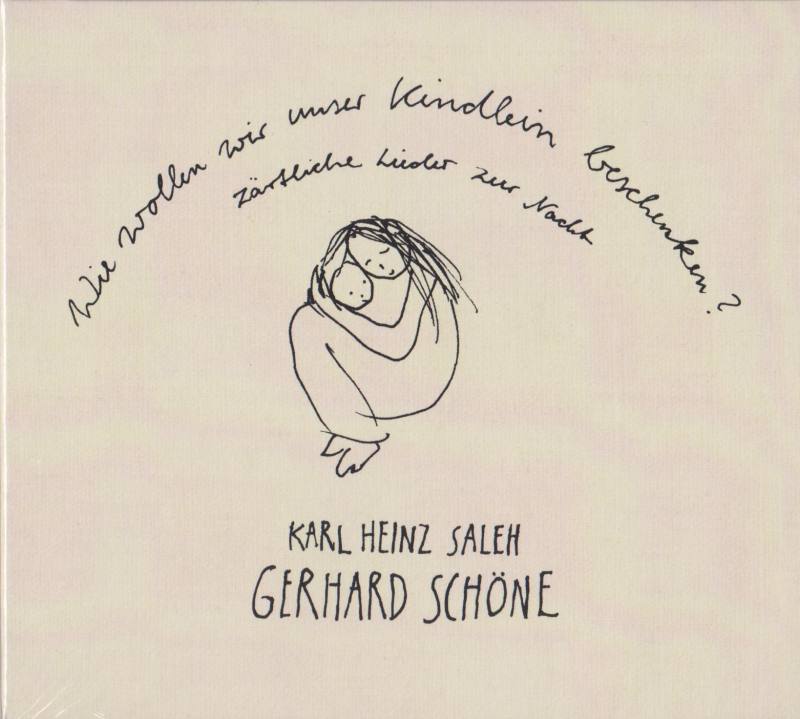 Wie wollen wir unser Kindlein beschenken?
zärtliche Lieder zur Nacht
KARL HEINZ SALEH
GERHARD SCHÖNE